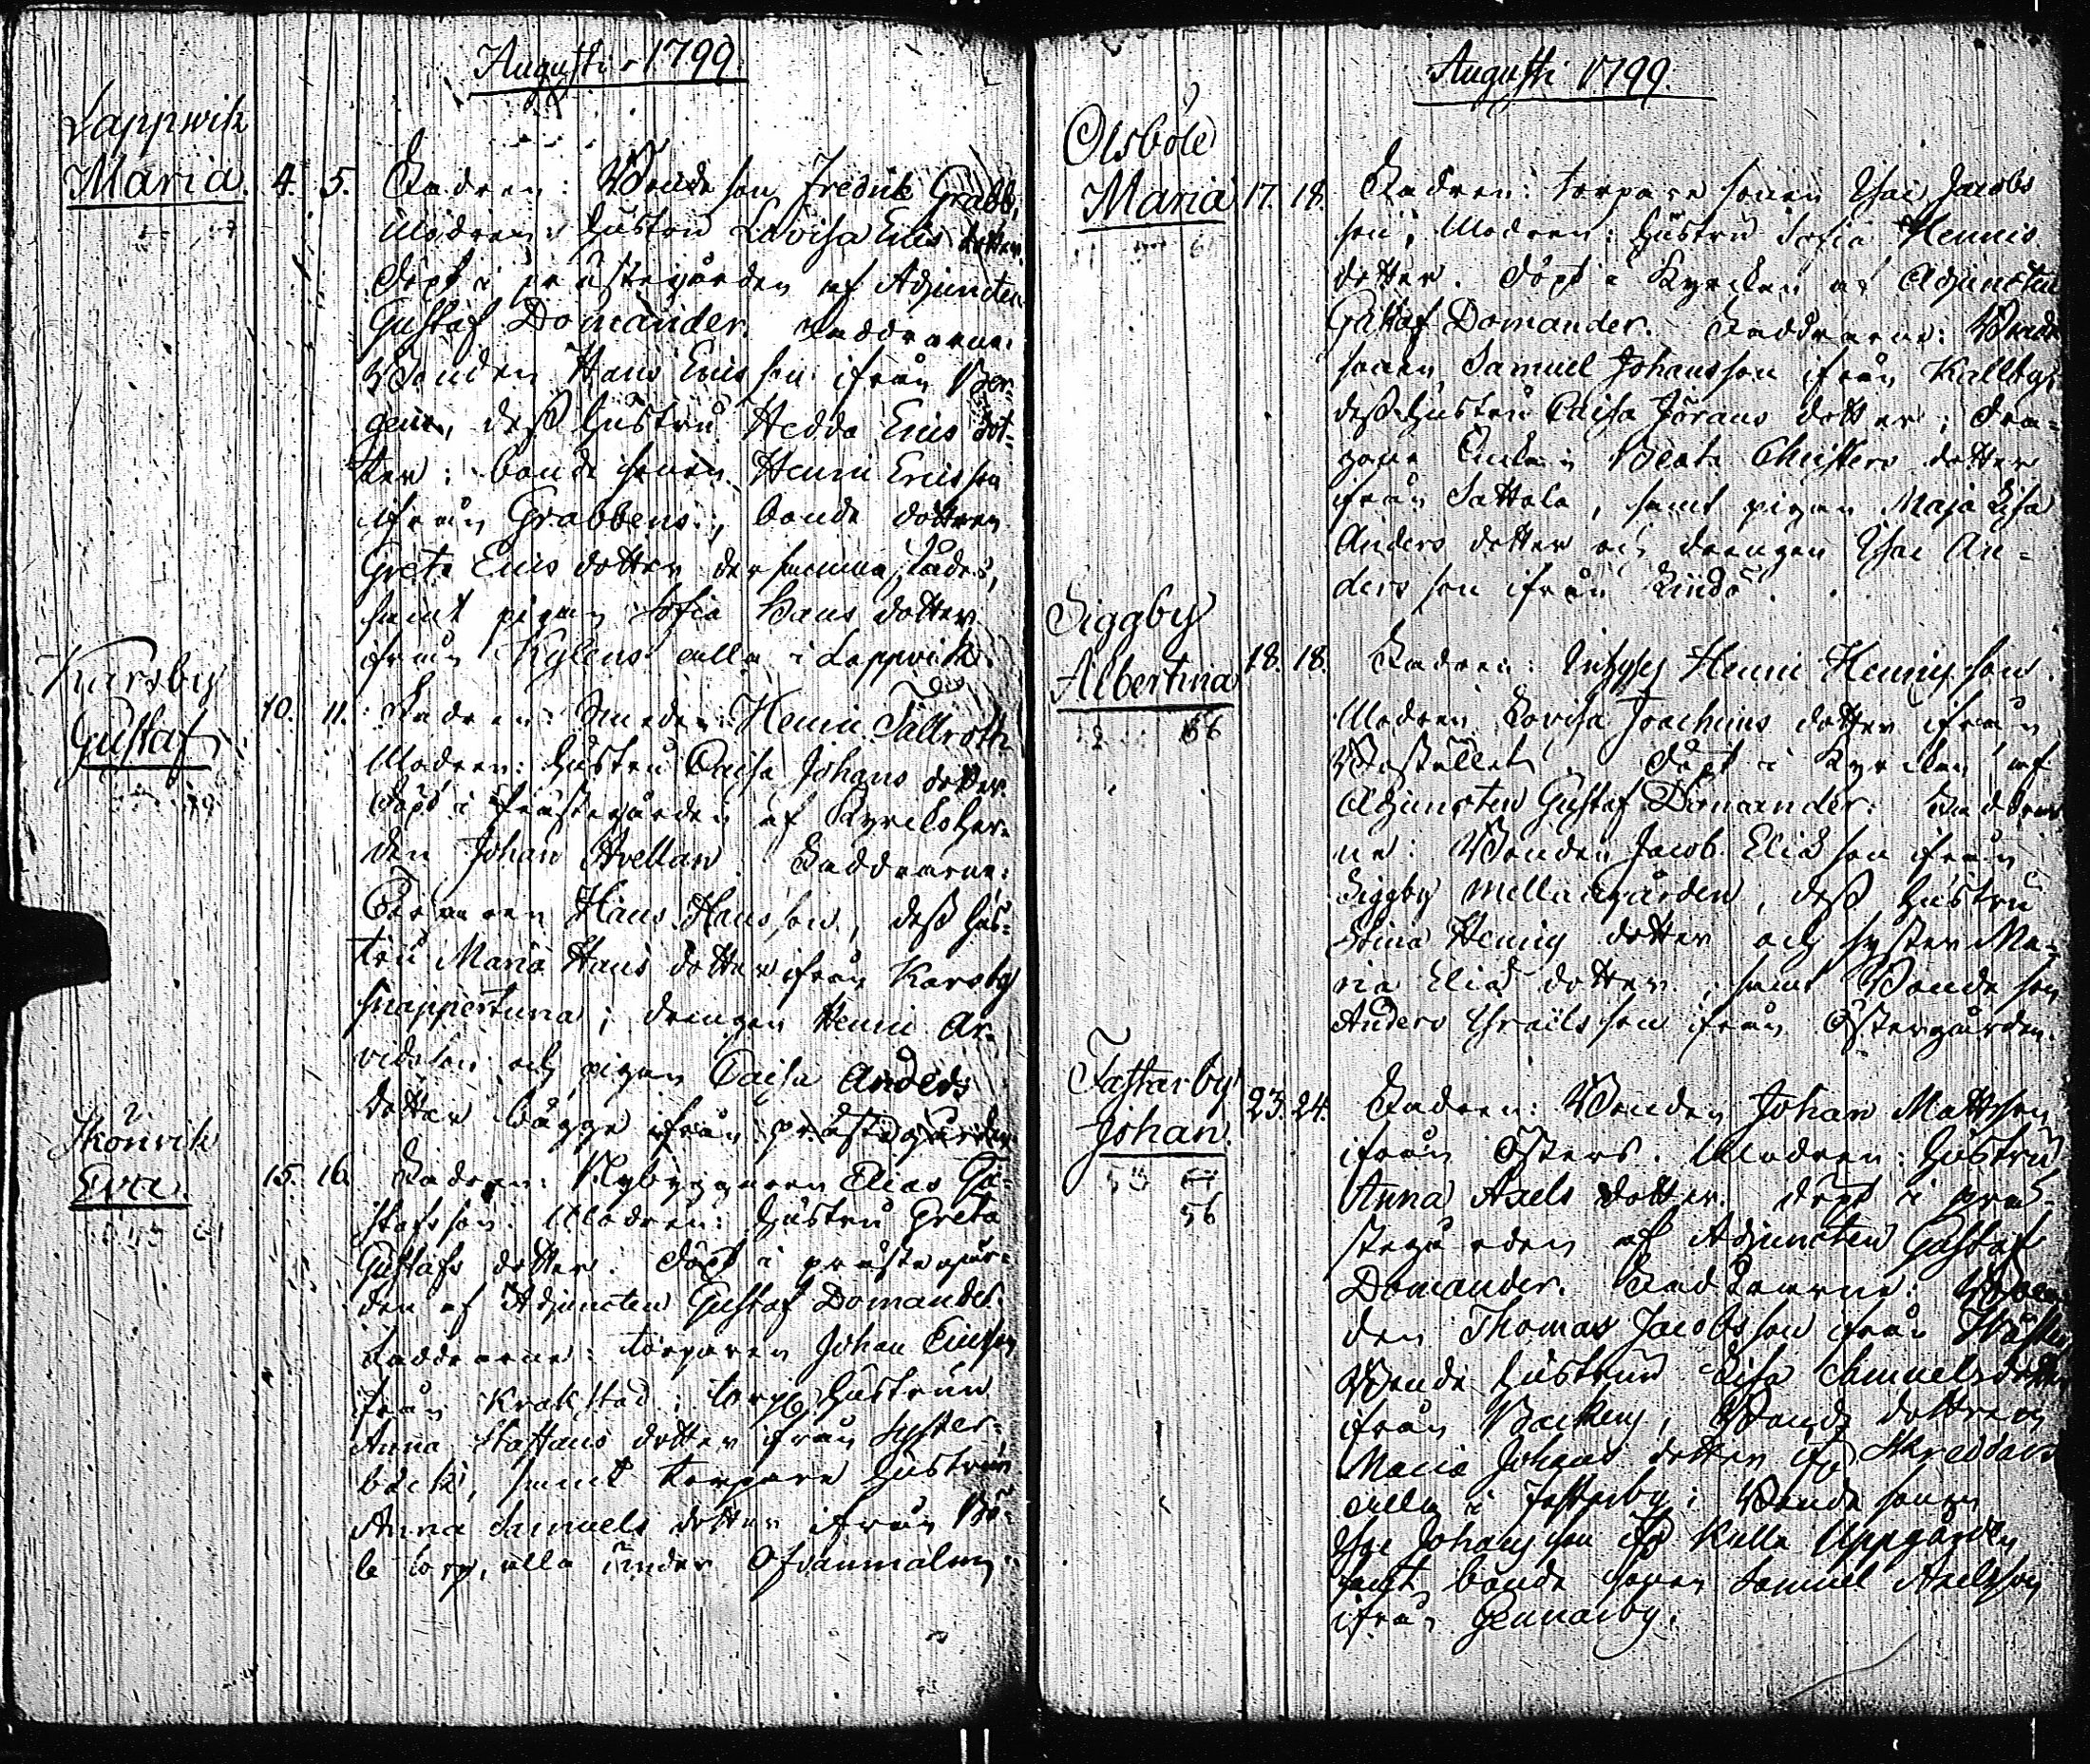 Augusti 1799
Lappwik
Maria. 4. 5. Fadren: Bonde son Fredric Grabb,
Modren: hustru Lovisa Erics dotter.
Döpt i prästegården af Adjuncten
Gustaf Domander. Faddrarne:
Bonden Hans Ericsson ifrån Ber-
gens, dess hustru Hedda Erics dot-
ter; bonde sonen Henric Ericsson
ifrån Grabbens; bonde dottren
Greta Erics dotter dersammastädes,
samt pigan Sofia Hans dotter
ifrån Kylens alla i Lappvik.
Karsby
Gustaf 10. 11. Fadren: Smeden Henric Tallroth
Modren: hustru Caisa Johans dotter.
Döpt i Prästegården af Kyrckoher-
den Johan Avellan. Faddrarne:
Hans Hansson, dess hus-
tru Maria Hans dotter ifrån Karsby
Snappertuna; drengen Henric Ar-
vidsson och pigan Caisa Anders
dotter bägge ifrån prästegården.
Skönvik
Eva. 15. 16. Fadren: Nybyggaren Elias Gu-
stafsson. Modren: hustru Greta
Gustafs dotter. Döpt i prästegår-
den af Adjuncten Gustaf Domander.
Faddrarne: torparen Johan Ericsson
ifrån Krakstad; torp hustrun
Anna Staffans dotter ifrån Syster-
bäck, samt torpare hustrun
Anna Samuels dotter ifrån Bö-
le torp, alla under Ofvanmalm.
Augusti 1799.
Olsböle
Maria 17. 18. Fadren: torpare sonen Isac Jacobs
son; Modren: hustru Sofia Henrics
dotter. Döpt i Kyrckan af Adjuncten
Gustaf Domander. Faddrarne: Bonde
sonen Samuel Johansson ifrån Kallby,
dess hustru Caisa Jörans dotter; Dra-
gone Enkan Beata Christers dotter
ifrån Sattala, samt pigan Maja Lisa
Anders dotter och drengen Isac An-
ders son ifrån Lindö.
Siggby
Albertina 18. 18. Fadren: Henric Henrics son.
66
Modren Lovisa Joachims dotter ifrån
Boställett. Döpt i Kyrckan af
Adjuncten Gustaf Domander. Faddrar
ne: Bonden Jacob Eliæ son ifrån
Siggby mellangården, dess hustru
Stina Henrics dotter och syster Ma-
ria Eliæ dotter, samt Bonde son
Anders Israels son ifrån Östergården.
Fastarby
Johan. 23. 24. Fadren: Bonden Johan Mattsson
ifrån Östers. Modren: hustru
56
Anna Axels dotter. Döpt i prä-
stegården af Adjuncten Gustaf
Domander. Faddrarne: Bon-
den Thomas Jacobsson ifrån
Bonde hustrun Lisa Samuels dotter
ifrån Backens, Bonde dottren
Maria Johans dotter ifr Skreddars
alla i Fastarby; Bonde sonen
Isac Johansson ifr Kulla Uppgården
samt bonde sonen Samuel Axelsson
ifrån Gennarby.